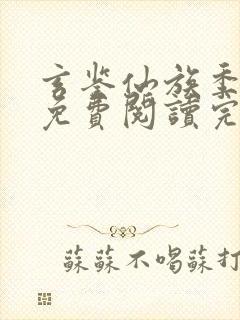 玄鉴仙族季
免費閱讀完
蘇蘇不喝蘇打